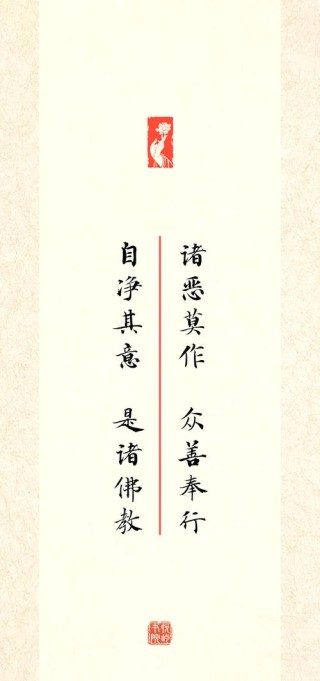 诸恶莫作 众善奉行
自净其意 是诸佛教